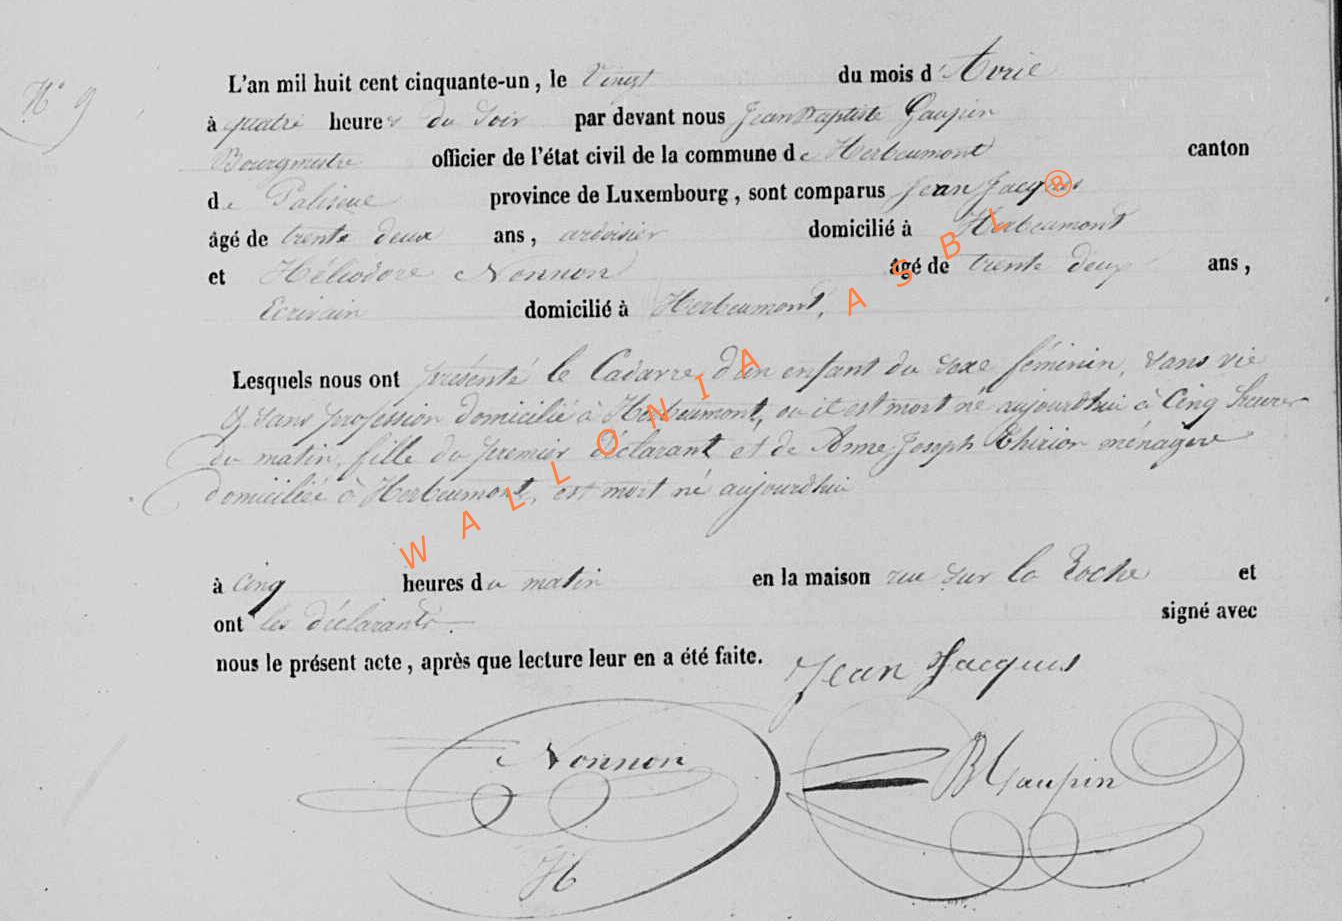 N° 9
L'an mil huit cent cinquante-un, le Vingt du mois d'Avril
à quatre heures du Soir par devant nous Jean Baptiste Gaupin
Bourgmestre officier de l'état civil de la commune de Herbeumont canton
de Paliseul province de Luxembourg, sont comparus Jean Jacques
âgé de trente deux ans, ardoisier domicilié à Herbeumont
et Héliodore Nonnon âgé de trente deux ans,
Ecrivain domicilié à Herbeumont,
Lesquels nous ont présenté le Cadavre d'un enfant du sexe féminin, sans vie
& sans profession domicilié à Herbeumont, où il est mort né aujourdhui à Cinq heures
du matin, fille du premier déclarant et de Anne Joseph Thiriox ménagère
domiciliée à Herbeumont, est mort né aujourdhui
à Cinq heures du matin en la maison rue sur la Roche et
ont les déclarants signé avec
nous le présent acte, après que lecture leur en a été faite.
Jean Jacques
Nonnon
B Gaupin
H
WALLONIA ASBL ®